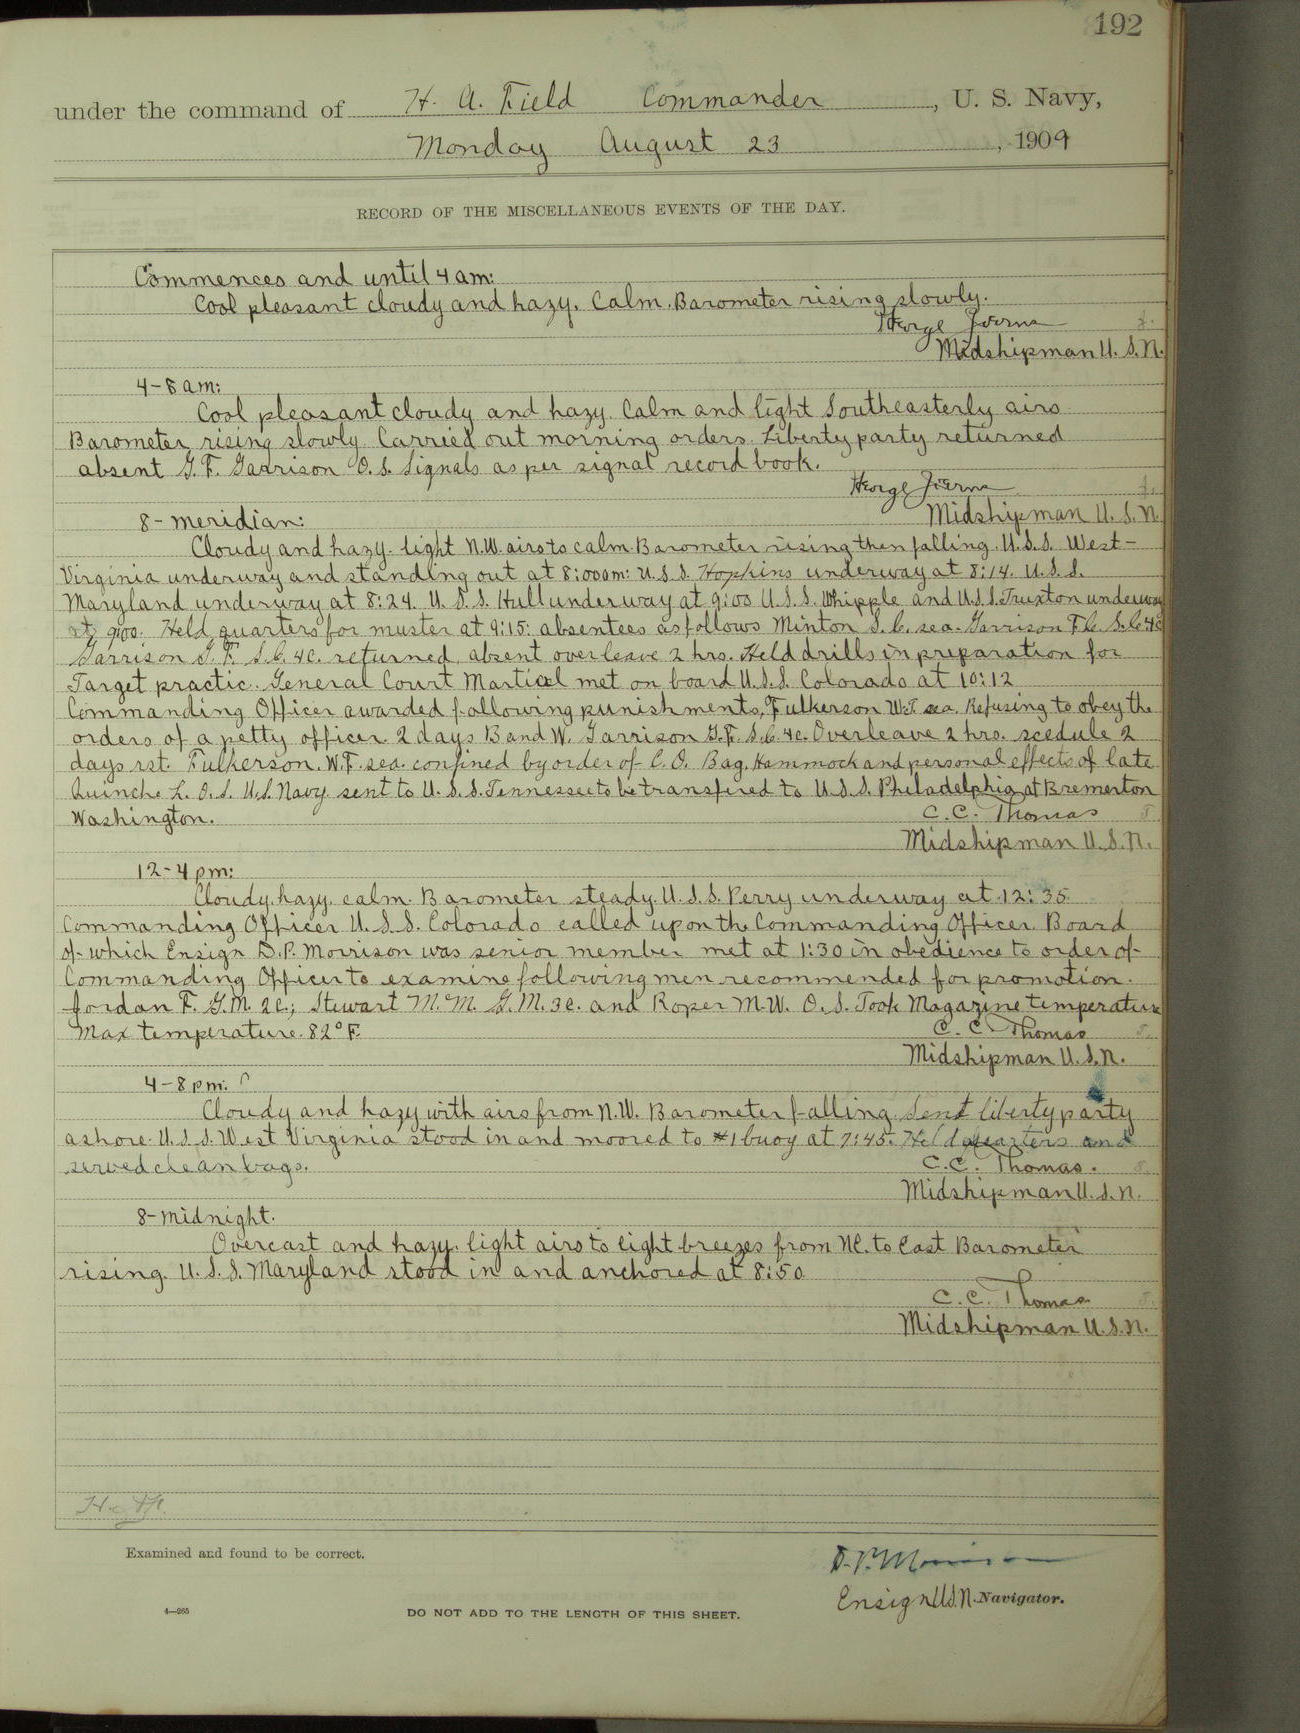 192
under the command of H. A. Field Commander, U. S. Navy,
Monday August 23, 1909
RECORD OF THE MISCELLANEOUS EVENTS OF THE DAY.
Commences and until 4 am:
Cool pleasant cloudy and hazy. Calm. Barometer rising slowly.
George Joerns
Midshipman U. S. N.
4-8 am:
Cool pleasant cloudy and hazy. Calm and light Southeasterly airs.
Barometer rising slowly. Carried out morning orders. Liberty party returned
absent G. F. Garrison O. S. Signals as per signal record book.
George Joerns
Midshipman U. S. N.
8- meridian:
Cloudy and hazy. light N.W. airs to calm. Barometer rising then falling. U.S.S. West-
Virginia underway and standing out at 8:00am: U.S.S. Hopkins underway at 8:14. U.S.S.
Maryland underway at 8:24. U.S.S. Hull underway at 9:00 U.S.S. Whipple and U.S.S. Truxton underway
at 9:00. Held quarters for muster at 9:15: absentees as follows Minton S.C. sea. Garrison F.C. S.C. 4c
Garrison G. F. S.C. 4c. returned, absent overleave 2 hrs. Held drills in preparation for
Target practic. General Court Martial met on board U.S.S. Colorado at 10:12
Commanding Officer awarded following punishments, Fulkerson W.F. sea. Refusing to obey the
orders of a petty officer 2 days B and W. Garrison G.F. S.C. 4c. Overleave 2 hrs. scedule 2
days rst. Fulkerson. W.F. sea. confined by order of C.O. Bag, Hammock and personal effects of late
Quinche L. O.S. U.S. Navy sent to U.S.S. Tennessee to be transfired to U.S.S. Philadelphia at Bremerton
Washington.
C. C. Thomas
Midshipman U.S.N.
12-4 pm:
Cloudy, hazy, calm. Barometer steady. U.S.S. Perry underway at 12:35
Commanding Officer U.S.S. Colorado called upon the Commanding Officer. Board
of which Ensign D.P. Morrison was senior member met at 1:30 in obedience to order of
Commanding Officer to examine following men recommended for promotion.
Jordan F. G.M. 2c.; Stewart M.M. G.M. 3c. and Roper M.W. O.S. Took Magazine temperature
Max temperature. 82° F.
C. C. Thomas
Midshipman U.S.N.
4-8 pm.
Cloudy and hazy with airs from N.W. Barometer falling. Sent liberty party
ashore. U.S.S. West Virginia stood in and moored to #1 buoy at 7:45. Held quarters and
served clean bags.
C. C. Thomas.
Midshipman U.S.N.
8-midnight.
Overcast and hazy. light airs to light breezes from NE. to East Barometer
rising. U.S.S. Maryland stood in and anchored at 8:50
C. C. Thomas
Midshipman U.S.N.
Examined and found to be correct.
D. P. Morrison
Ensign U.S.N. Navigator.
4—265
DO NOT ADD TO THE LENGTH OF THIS SHEET.